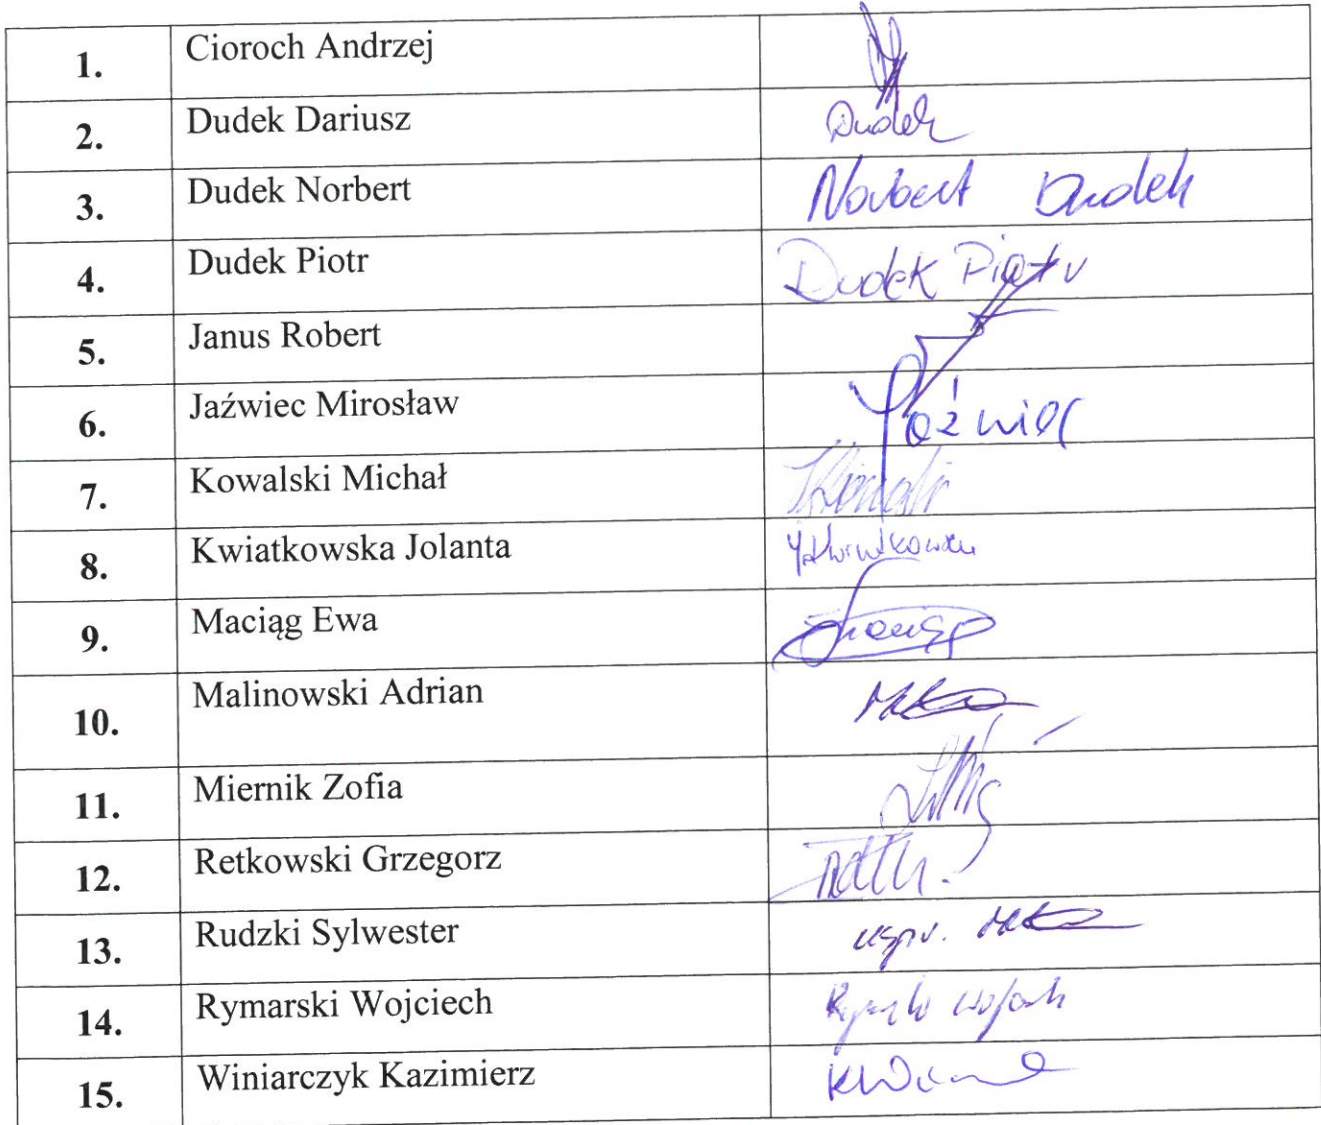 1. Cioroch Andrzej
2. Dudek Dariusz Dudek
3. Dudek Norbert Norbert Dudek
4. Dudek Piotr Dudek Piotr
5. Janus Robert
6. Jaźwiec Mirosław Jaźwiec
7. Kowalski Michał
8. Kwiatkowska Jolanta JKwiatkowska
9. Maciąg Ewa
10. Malinowski Adrian
11. Miernik Zofia
12. Retkowski Grzegorz
13. Rudzki Sylwester uspr.
14. Rymarski Wojciech
15. Winiarczyk Kazimierz